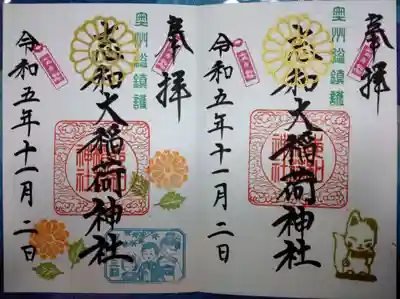 奉拝
奥州総鎮護
志和大稲荷神社
令和五年十一月二日
奉拝
奥州総鎮護
志和大稲荷神社
令和五年十一月二日